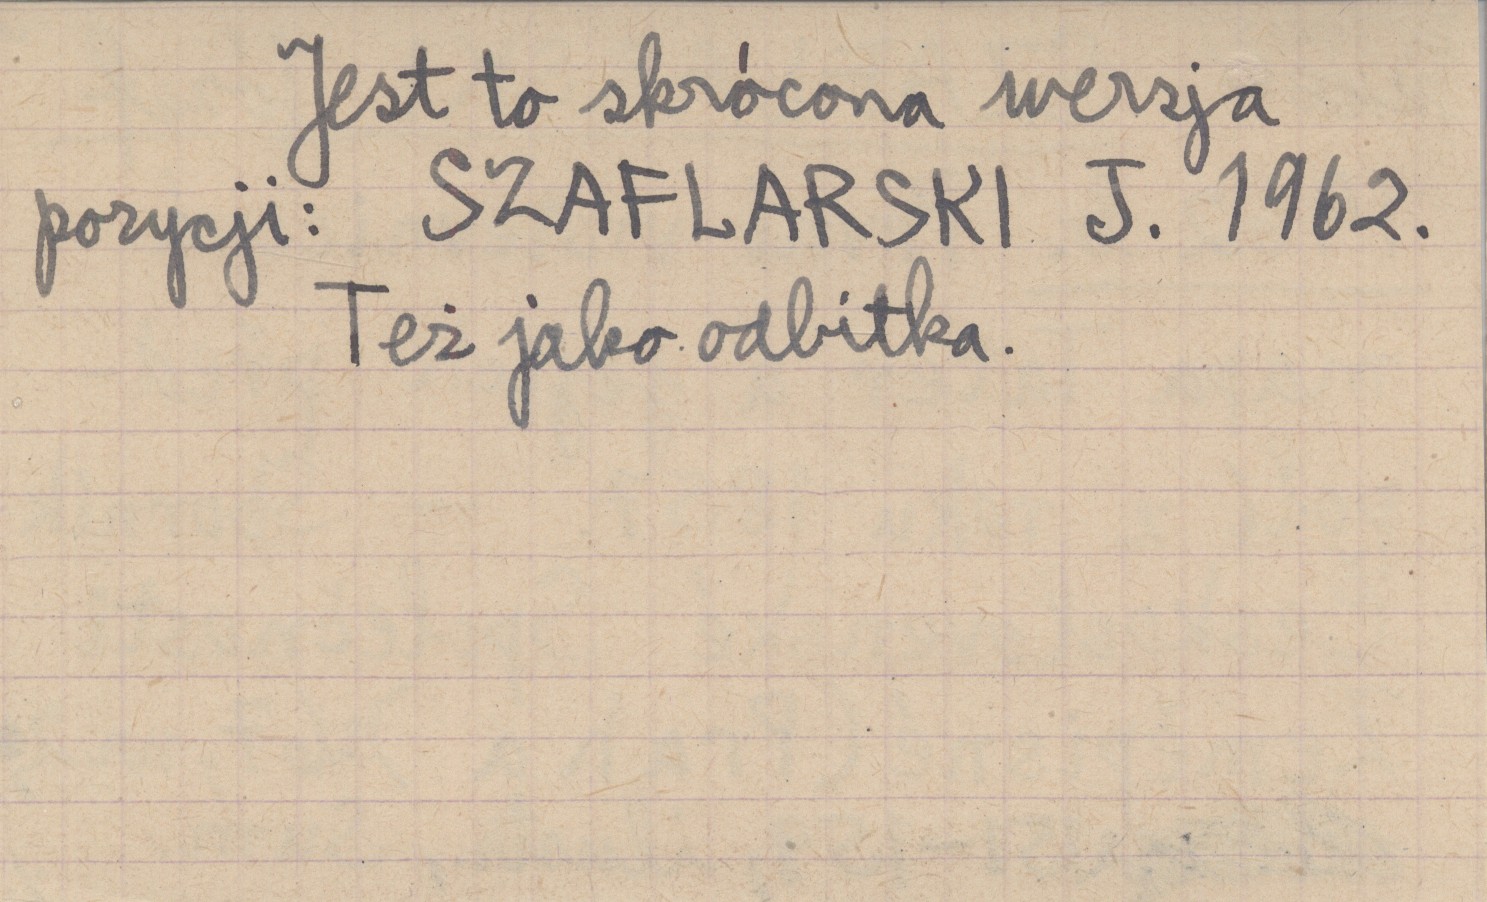 Jest to skrócona wersja
pozycji: SZAFLARSKI J. 1962.
Też jako odbitka.